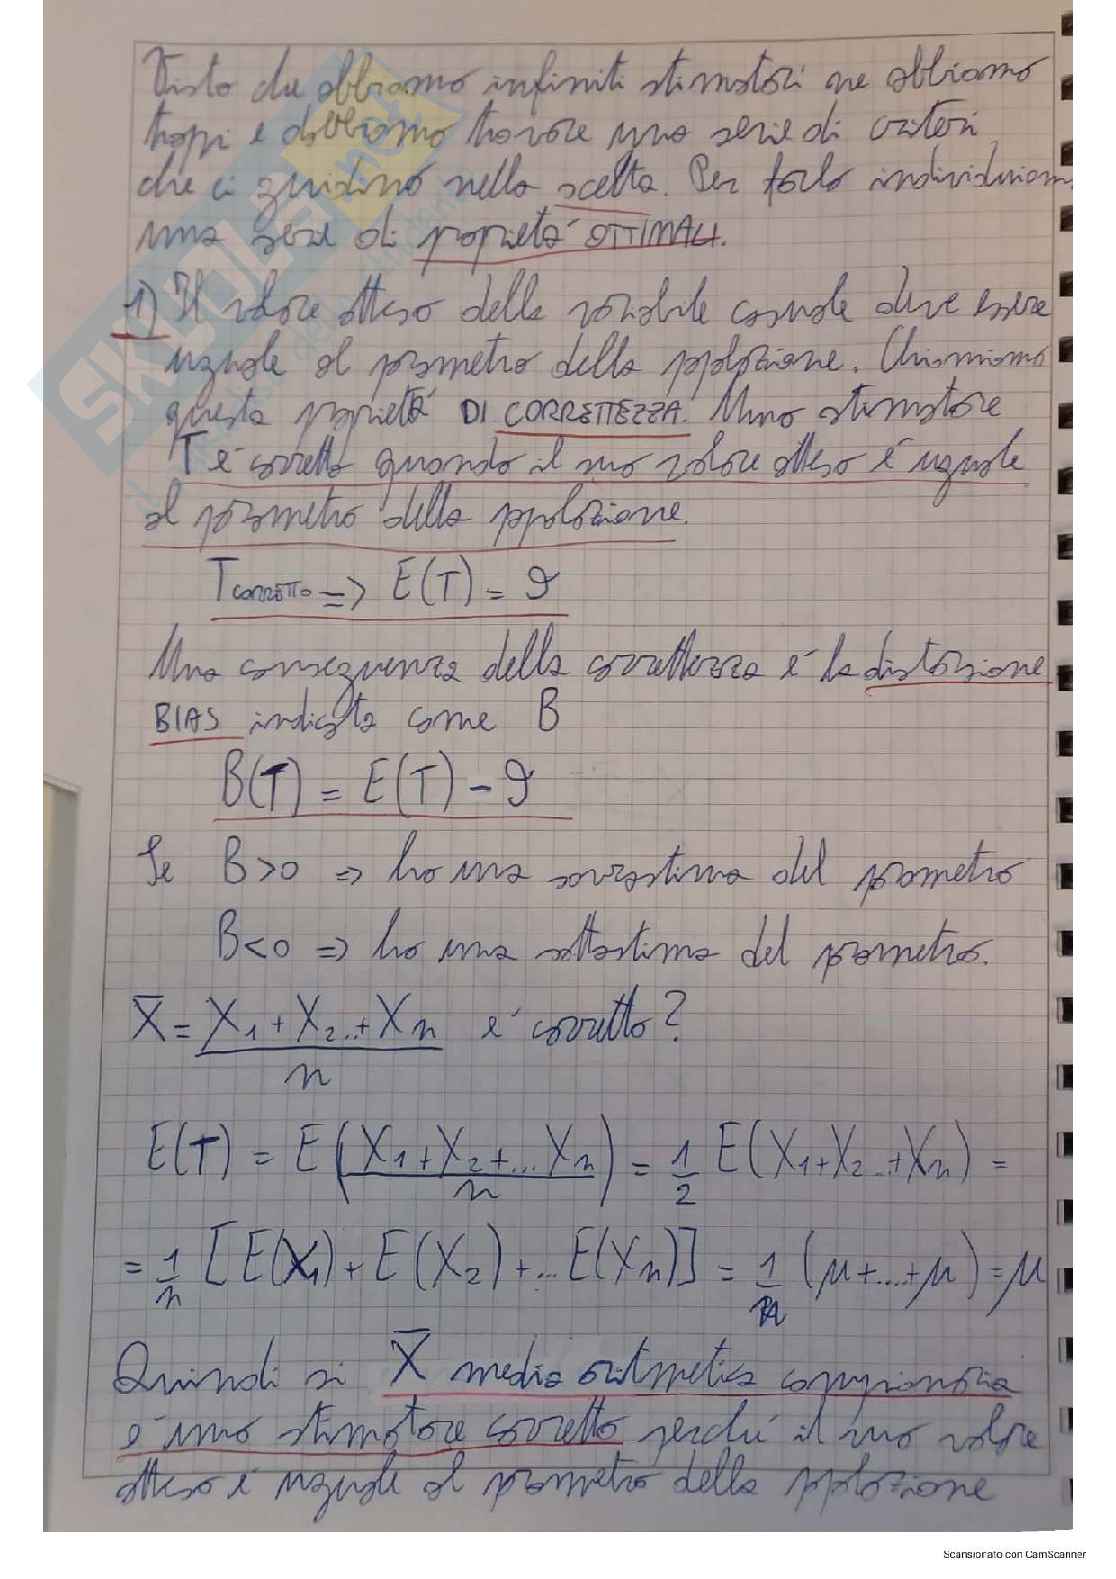 Visto che abbiamo infiniti stimatori ne abbiamo
troppi e dobbiamo trovare una serie di criteri
che ci guidino nella scelta. Per farlo individuiamo
una serie di proprietà OTTIMALI.
1) Il valore atteso della variabile casuale deve essere
uguale al parametro della popolazione. Chiamiamo
questa proprietà DI CORRETTEZZA. Uno stimatore
T è corretto quando il suo valore atteso è uguale
al parametro della popolazione.
T CORRETTO => E(T) = ϑ
Una conseguenza della correttezza è la distorsione
BIAS indicata come B
B(T) = E(T) - ϑ
Se B>0 => ho una sovrastima del parametro
B<0 => ho una sottostima del parametro.
X̄ = X1 + X2 ..+ Xn è corretto?
n
E(T) = E(X1+X2+...Xn / n) = 1/2 E(X1+X2..+Xn) =
= 1/n [E(X1)+E(X2)+...E(Xn)] = 1/n (μ+...+μ) = μ
Quindi si X̄ media aritmetica campionaria
è uno stimatore corretto perché il suo valore
atteso è uguale al parametro della popolazione
SKUOLA.net
Scansionato con CamScanner